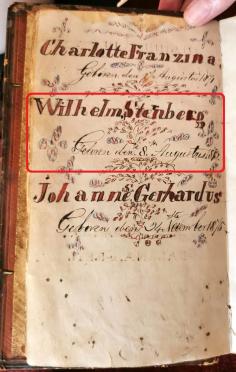 Charlotte Franzina
Geboren den August
Wilhelm Stenberg
Geboren den 8. Augustus
Johanne Gerhardus
Geboren den 24 November